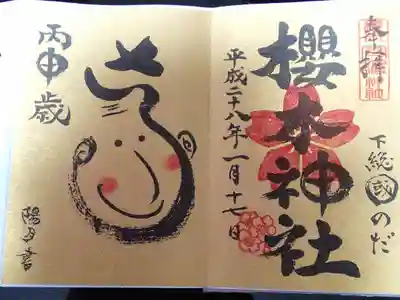 奉拝
下総國のだ
櫻木神社
平成二十八年一月十七日
丙申歳